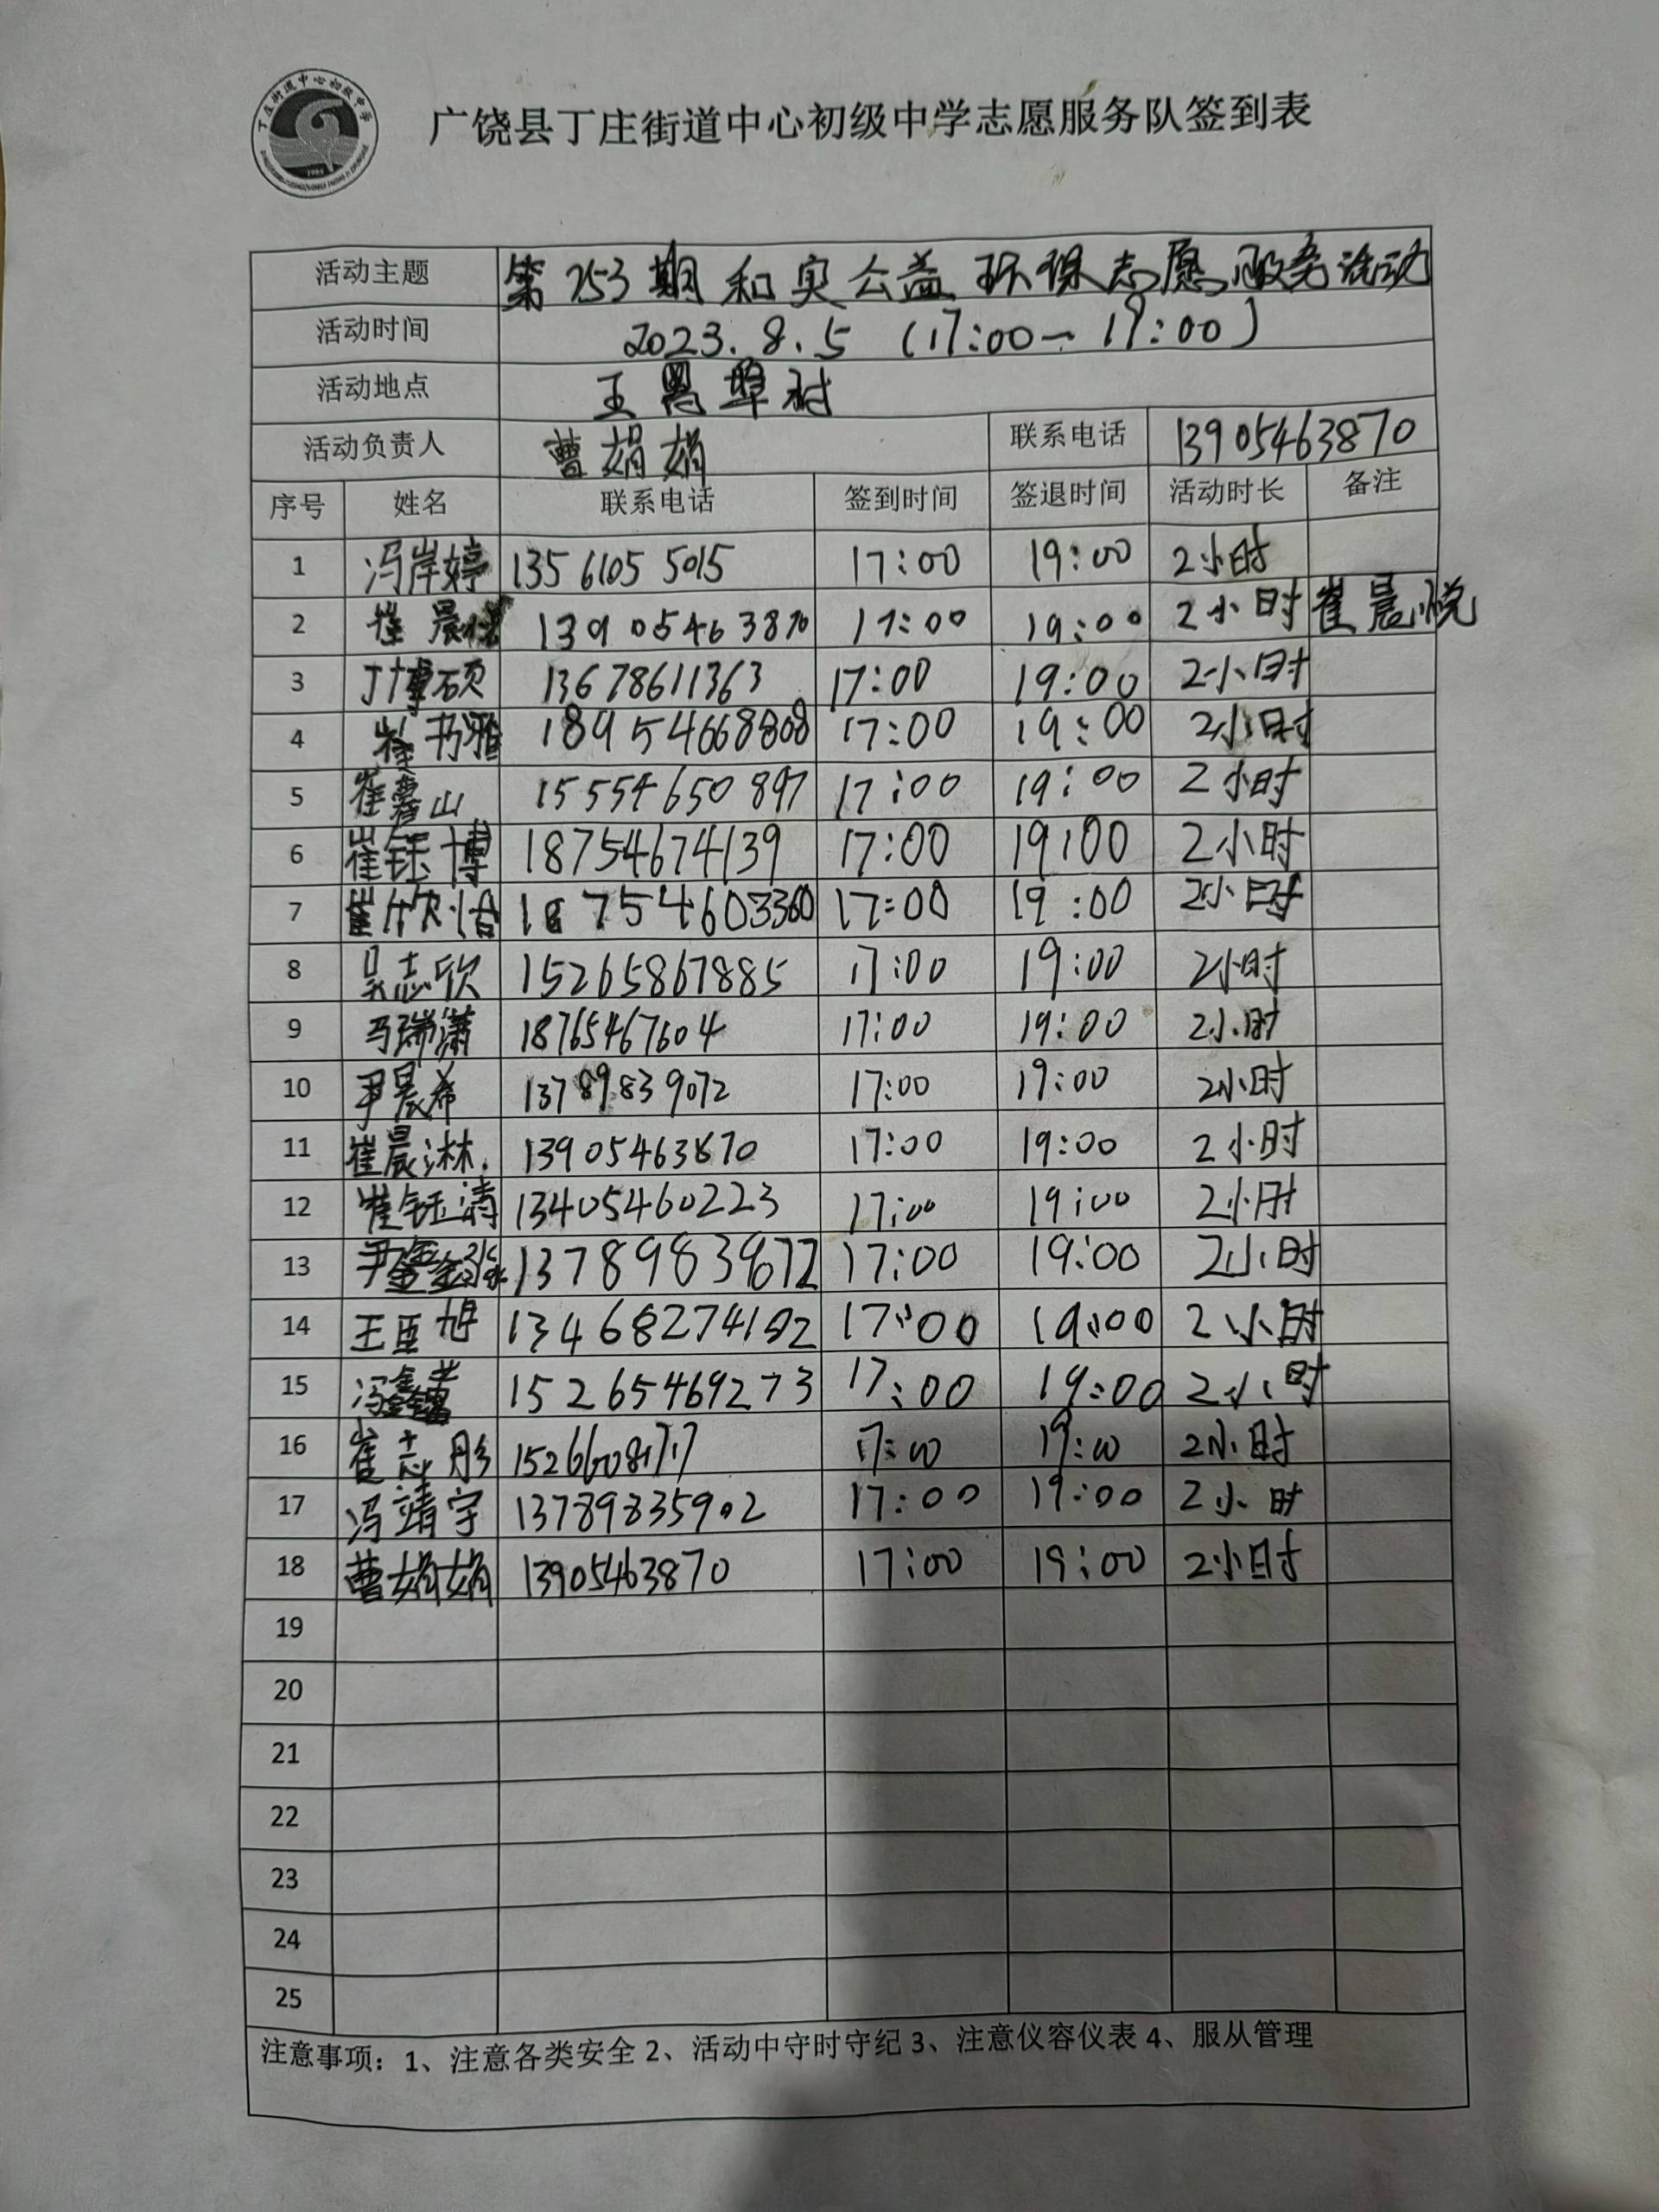 丁庄街道中心初级中学
广饶县丁庄街道中心初级中学志愿服务队签到表
活动主题 第253期和实公益环保志愿服务活动
活动时间 2023.8.5 (17:00-19:00)
活动地点 王署埠村
活动负责人 曹娟娟 联系电话 13905463870
序号 姓名 联系电话 签到时间 签退时间 活动时长 备注
1 冯岸婷 13561055015 17:00 19:00 2小时
2 崔晨悦 13905463870 17:00 19:00 2小时 崔晨悦
3 丁博硕 13678611363 17:00 19:00 2小时
4 崔书雅 18954668808 17:00 19:00 2小时
5 崔山 15554650897 17:00 19:00 2小时
6 崔钰博 18754674139 17:00 19:00 2小时
7 崔欣怡 18754603360 17:00 19:00 2小时
8 吴志欣 15265867885 17:00 19:00 2小时
9 马瑞潇 18765467604 17:00 19:00 2小时
10 尹晨希 13789839072 17:00 19:00 2小时
11 崔晨淋 13905463870 17:00 19:00 2小时
12 崔钰涛 13405460223 17:00 19:00 2小时
13 尹鑫 13789839072 17:00 19:00 2小时
14 王臣旭 13468274102 17:00 19:00 2小时
15 冯鑫 15265469273 17:00 19:00 2小时
16 崔志彤 15266081717 17:00 19:00 2小时
17 冯靖宇 13789835902 17:00 19:00 2小时
18 曹娟娟 13905463870 17:00 19:00 2小时
19
20
21
22
23
24
25
注意事项：1、注意各类安全 2、活动中守时守纪 3、注意仪容仪表 4、服从管理